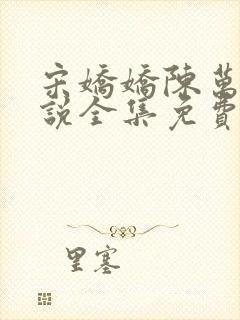 宋嬌嬌陳萬
說全集免費
里塞